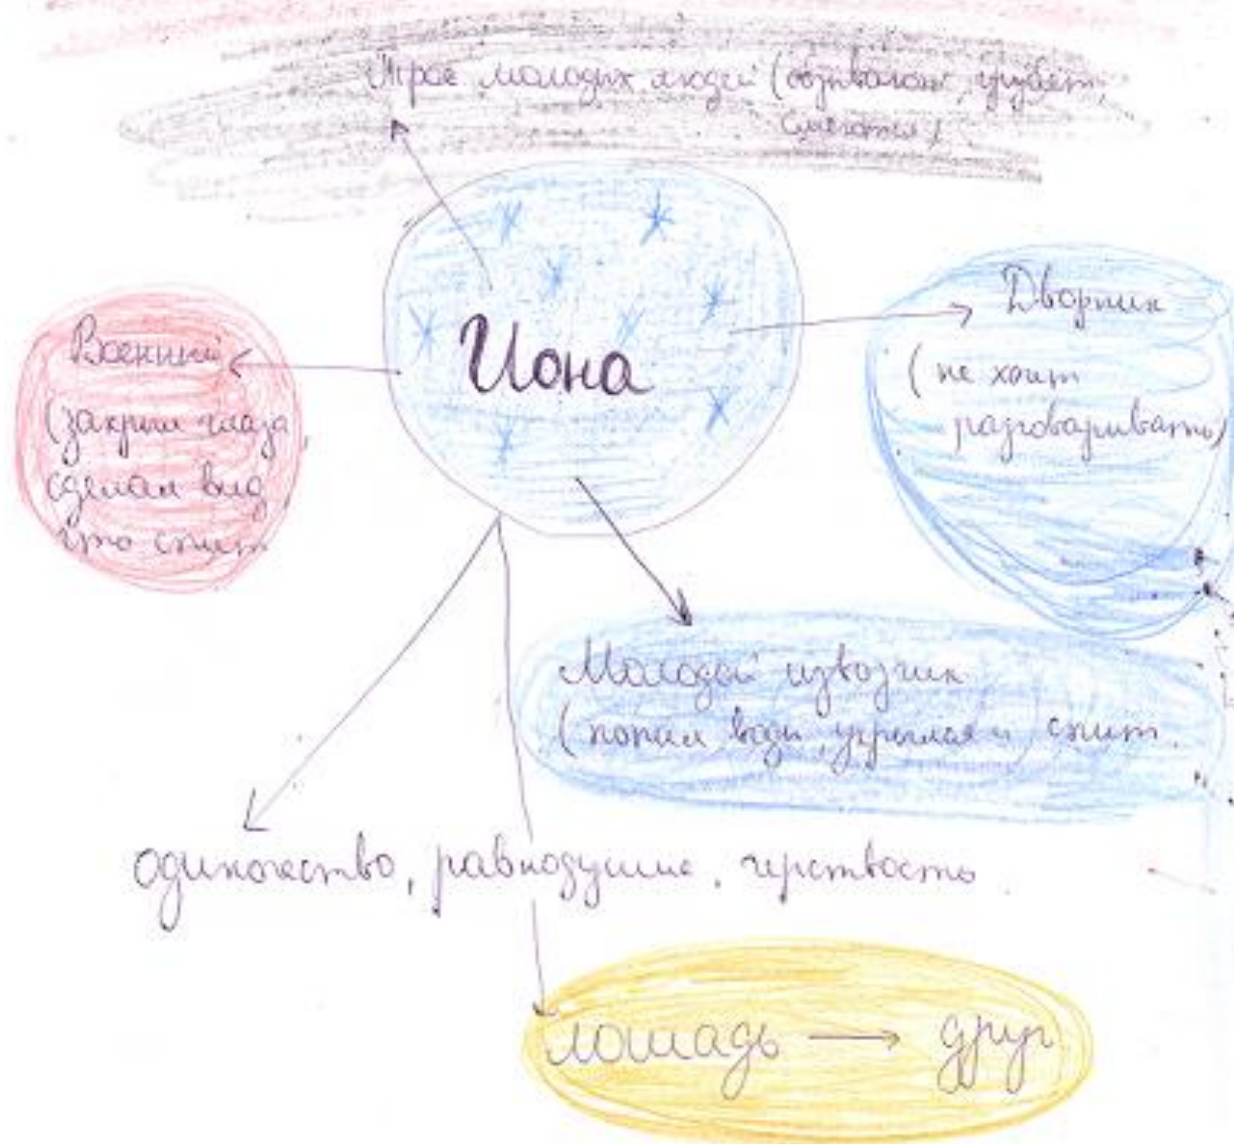 Трое молодых людей (обзывают, грубят,
смеются)
Иона
Военный
(закрыл глаза,
сделал вид,
что спит
Дворник
(не хочет
разговаривать)
Молодой извозчик
(попил воды, укрылся и спит.
одиночество, равнодушие, черствость.
лошадь → друг